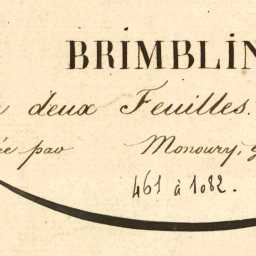 BRIMBLIN
deux Feuilles.
par Monoury, g
461 à 1082.